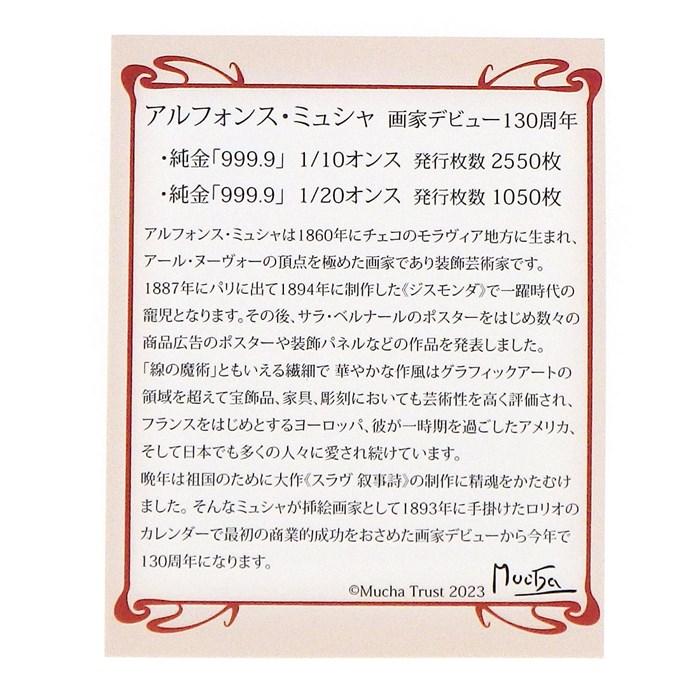 アルフォンス・ミュシャ 画家デビュー130周年
・純金「999.9」 1/10オンス 発行枚数 2550枚
・純金「999.9」 1/20オンス 発行枚数 1050枚
アルフォンス・ミュシャは1860年にチェコのモラヴィア地方に生まれ、
アール・ヌーヴォーの頂点を極めた画家であり装飾芸術家です。
1887年にパリに出て1894年に制作した《ジスモンダ》で一躍時代の
寵児となります。その後、サラ・ベルナールのポスターをはじめ数々の
商品広告のポスターや装飾パネルなどの作品を発表しました。
「線の魔術」ともいえる繊細で 華やかな作風はグラフィックアートの
領域を超えて宝飾品、家具、彫刻においても芸術性を高く評価され、
フランスをはじめとするヨーロッパ、彼が一時期を過ごしたアメリカ、
そして日本でも多くの人々に愛され続けています。
晩年は祖国のために大作《スラヴ 叙事詩》の制作に精魂をかたむけ
ました。そんなミュシャが挿絵画家として1893年に手掛けたロリオの
カレンダーで最初の商業的成功をおさめた画家デビューから今年で
130周年になります。
©Mucha Trust 2023 Mucha